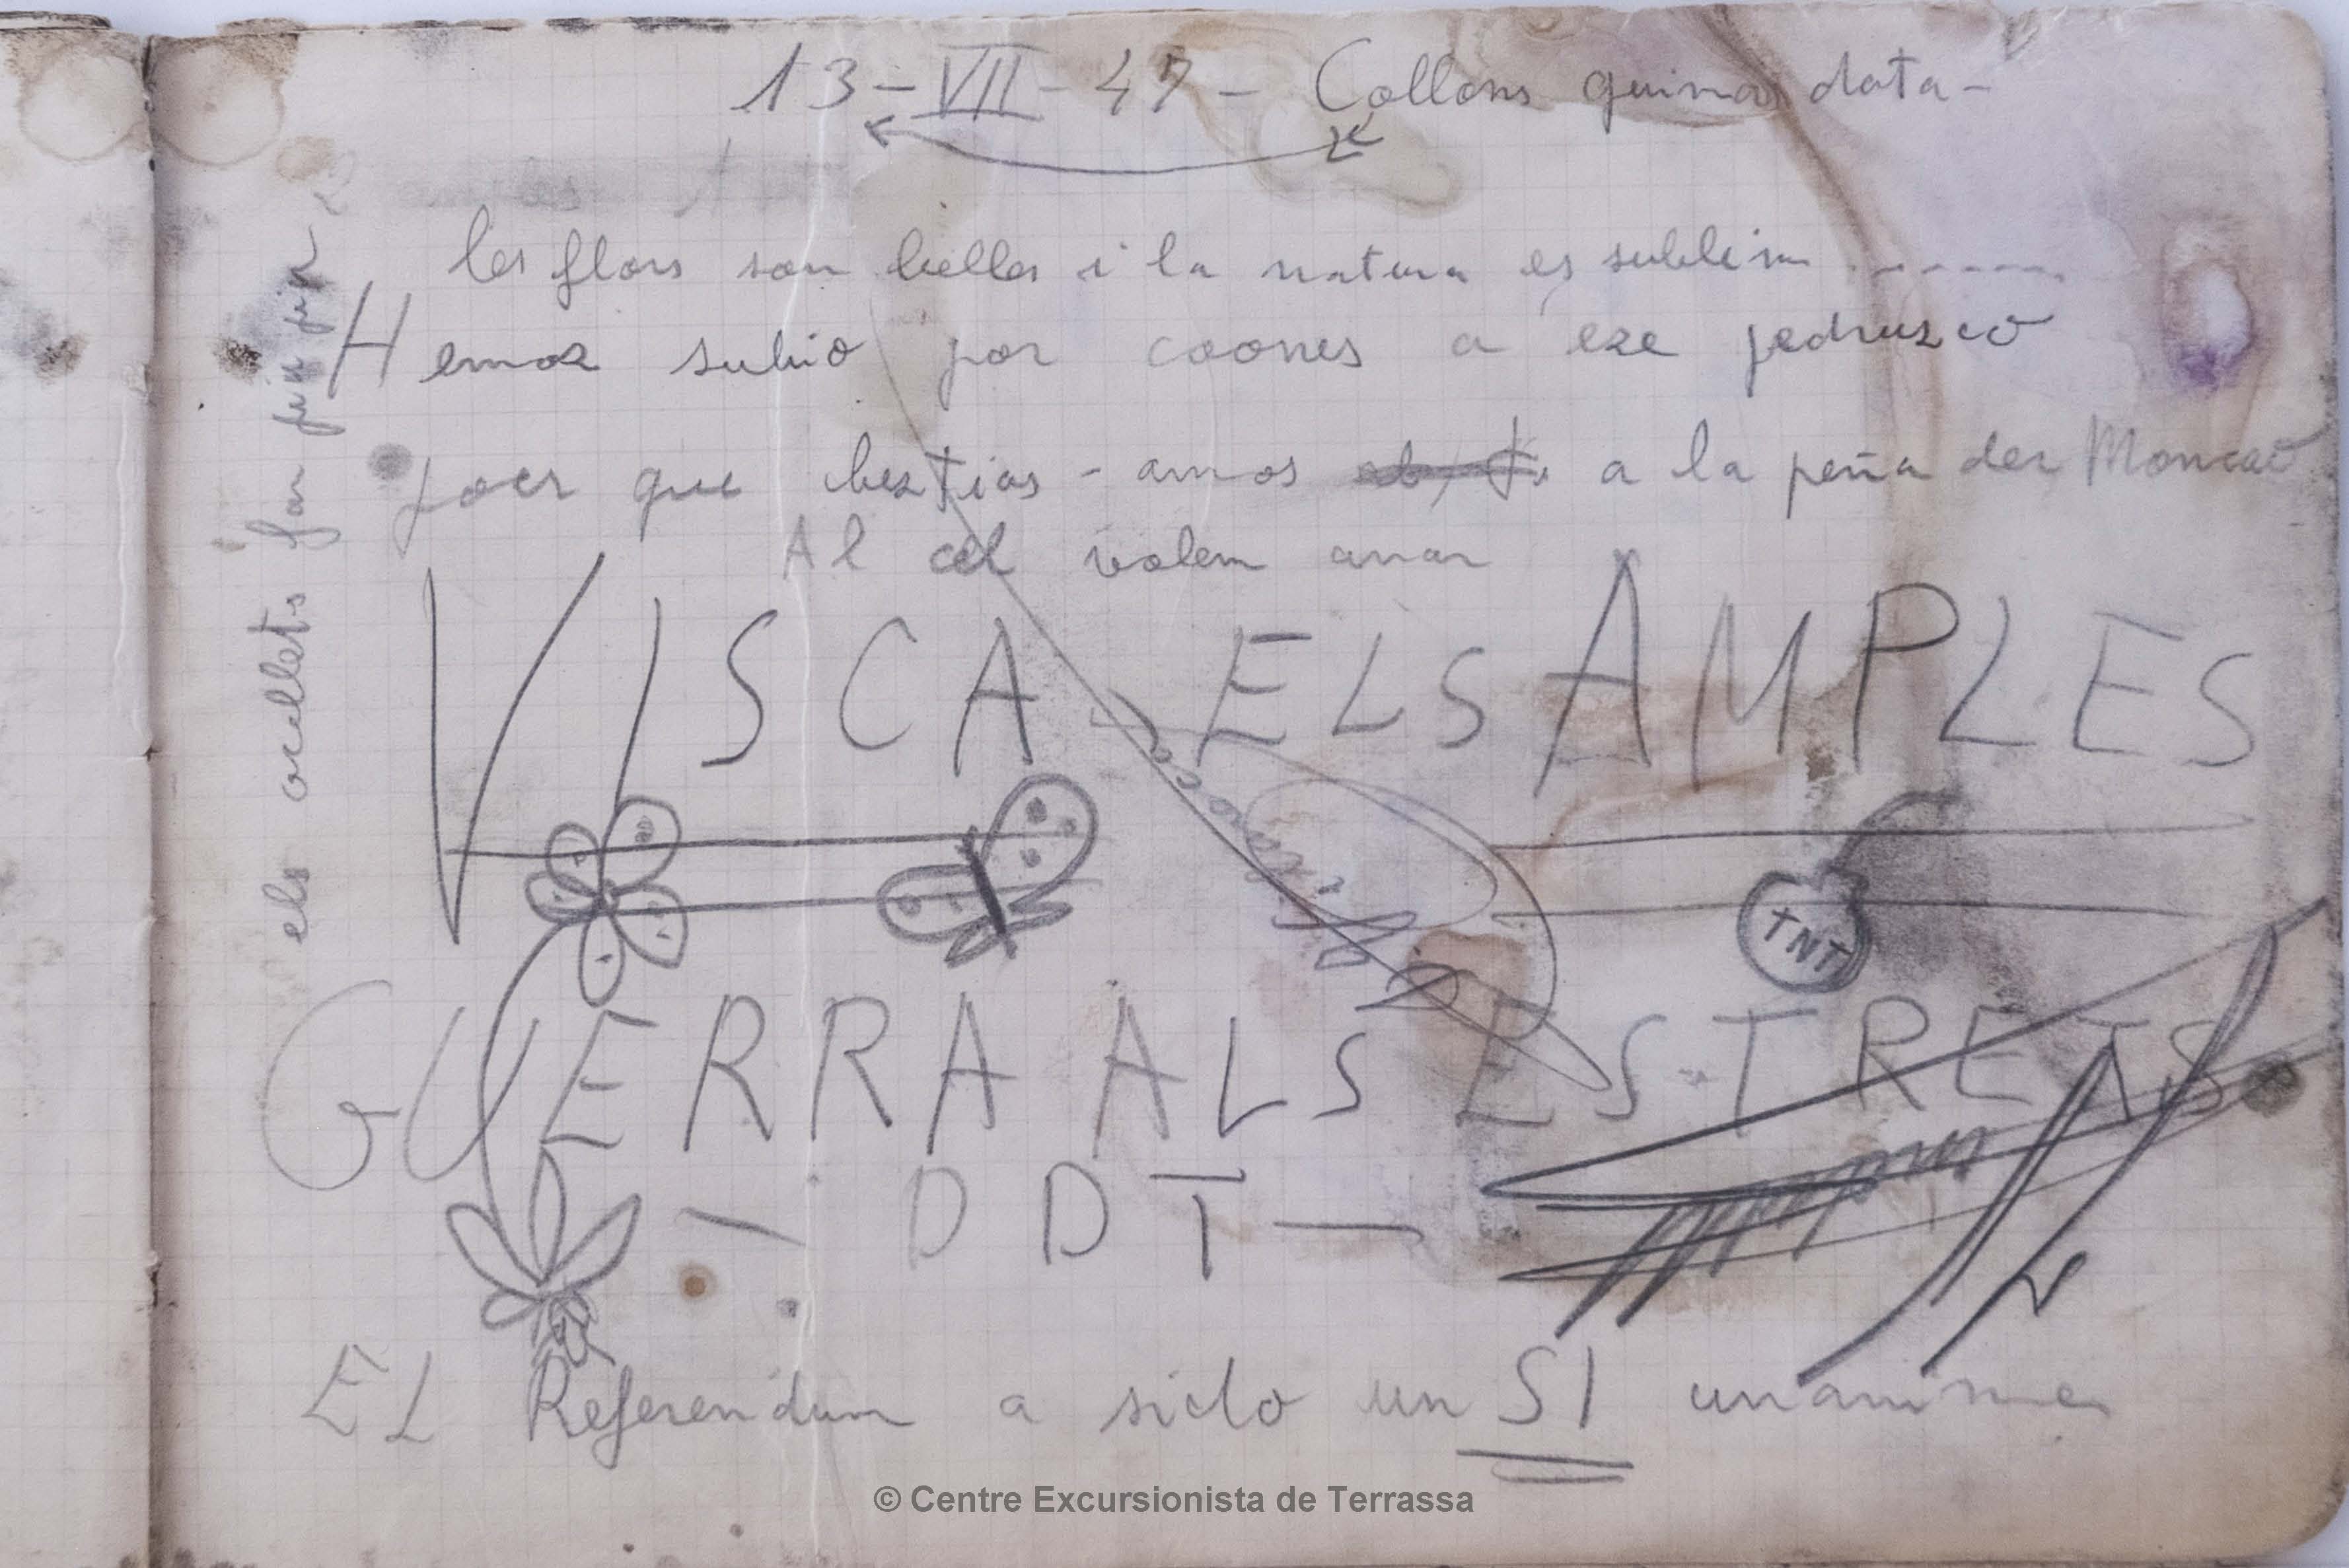 13-VII-47- Collons quina data-
les flors son belles i la natura es sublim .-------
Hemoz subio por coones a eze pedruzco
joer que beztias - amos a la peña der Moncao
Al cel volem anar
VISCA ELS AMPLES
TNT
GUERRA ALS ESTRETS
- DDT -
EL Referendum a sido un SI unanime
els ocellets fan piu piu
© Centre Excursionista de Terrassa